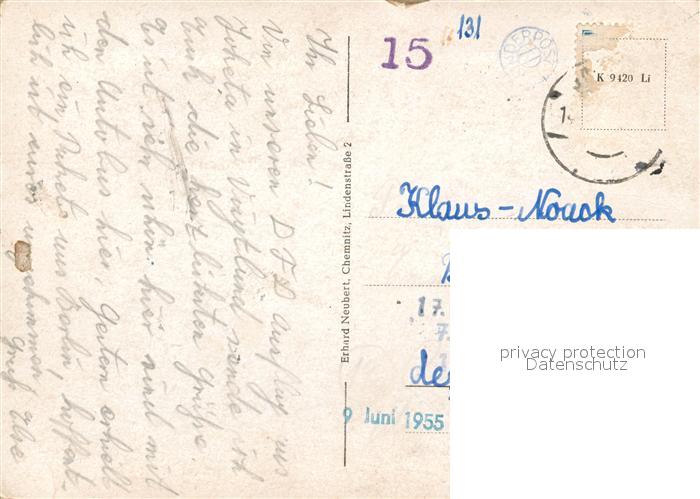 Ihr Lieben!
Von unserem DFD Ausflug aus
in Vogtland sende ich
auch die herzlichsten Grüße.
Es ist sehr schön hier sind mit
den Autobus hier. Gestern erhielt
ich ein Paket aus Berlin, hoffent-
lich ist eures angekommen
Gruß Ilse
Erhard Neubert, Chemnitz, Lindenstraße 2
15
131
K 9420 Li
Klaus-Noack
17.
7.
9 Juni 1955
privacy protection
Datenschutz